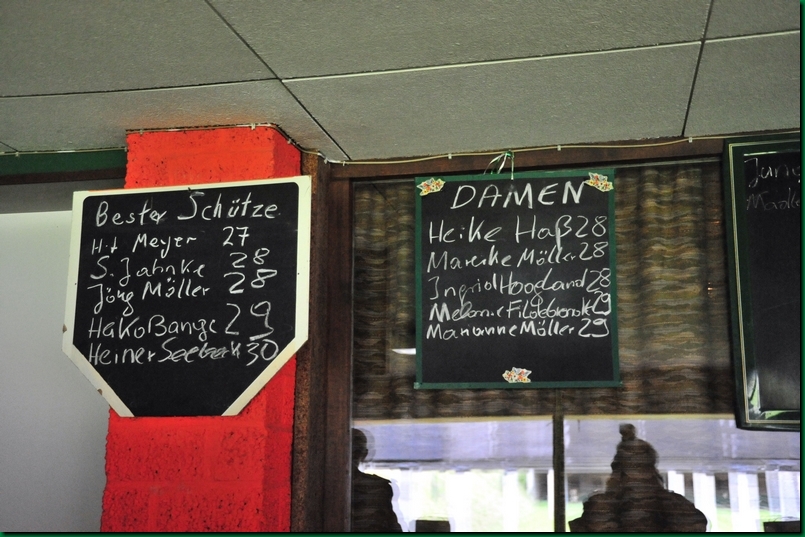 Bester Schütze
H-t Meyer 27
S. Jahnke 28
Jörg Möller 28
Hako Bange 29
Heiner 30
DAMEN
Heike Haß 28
Mareike Möller 28
Ingrid Hoogland 28
Melanie 29
Marianne Möller 29